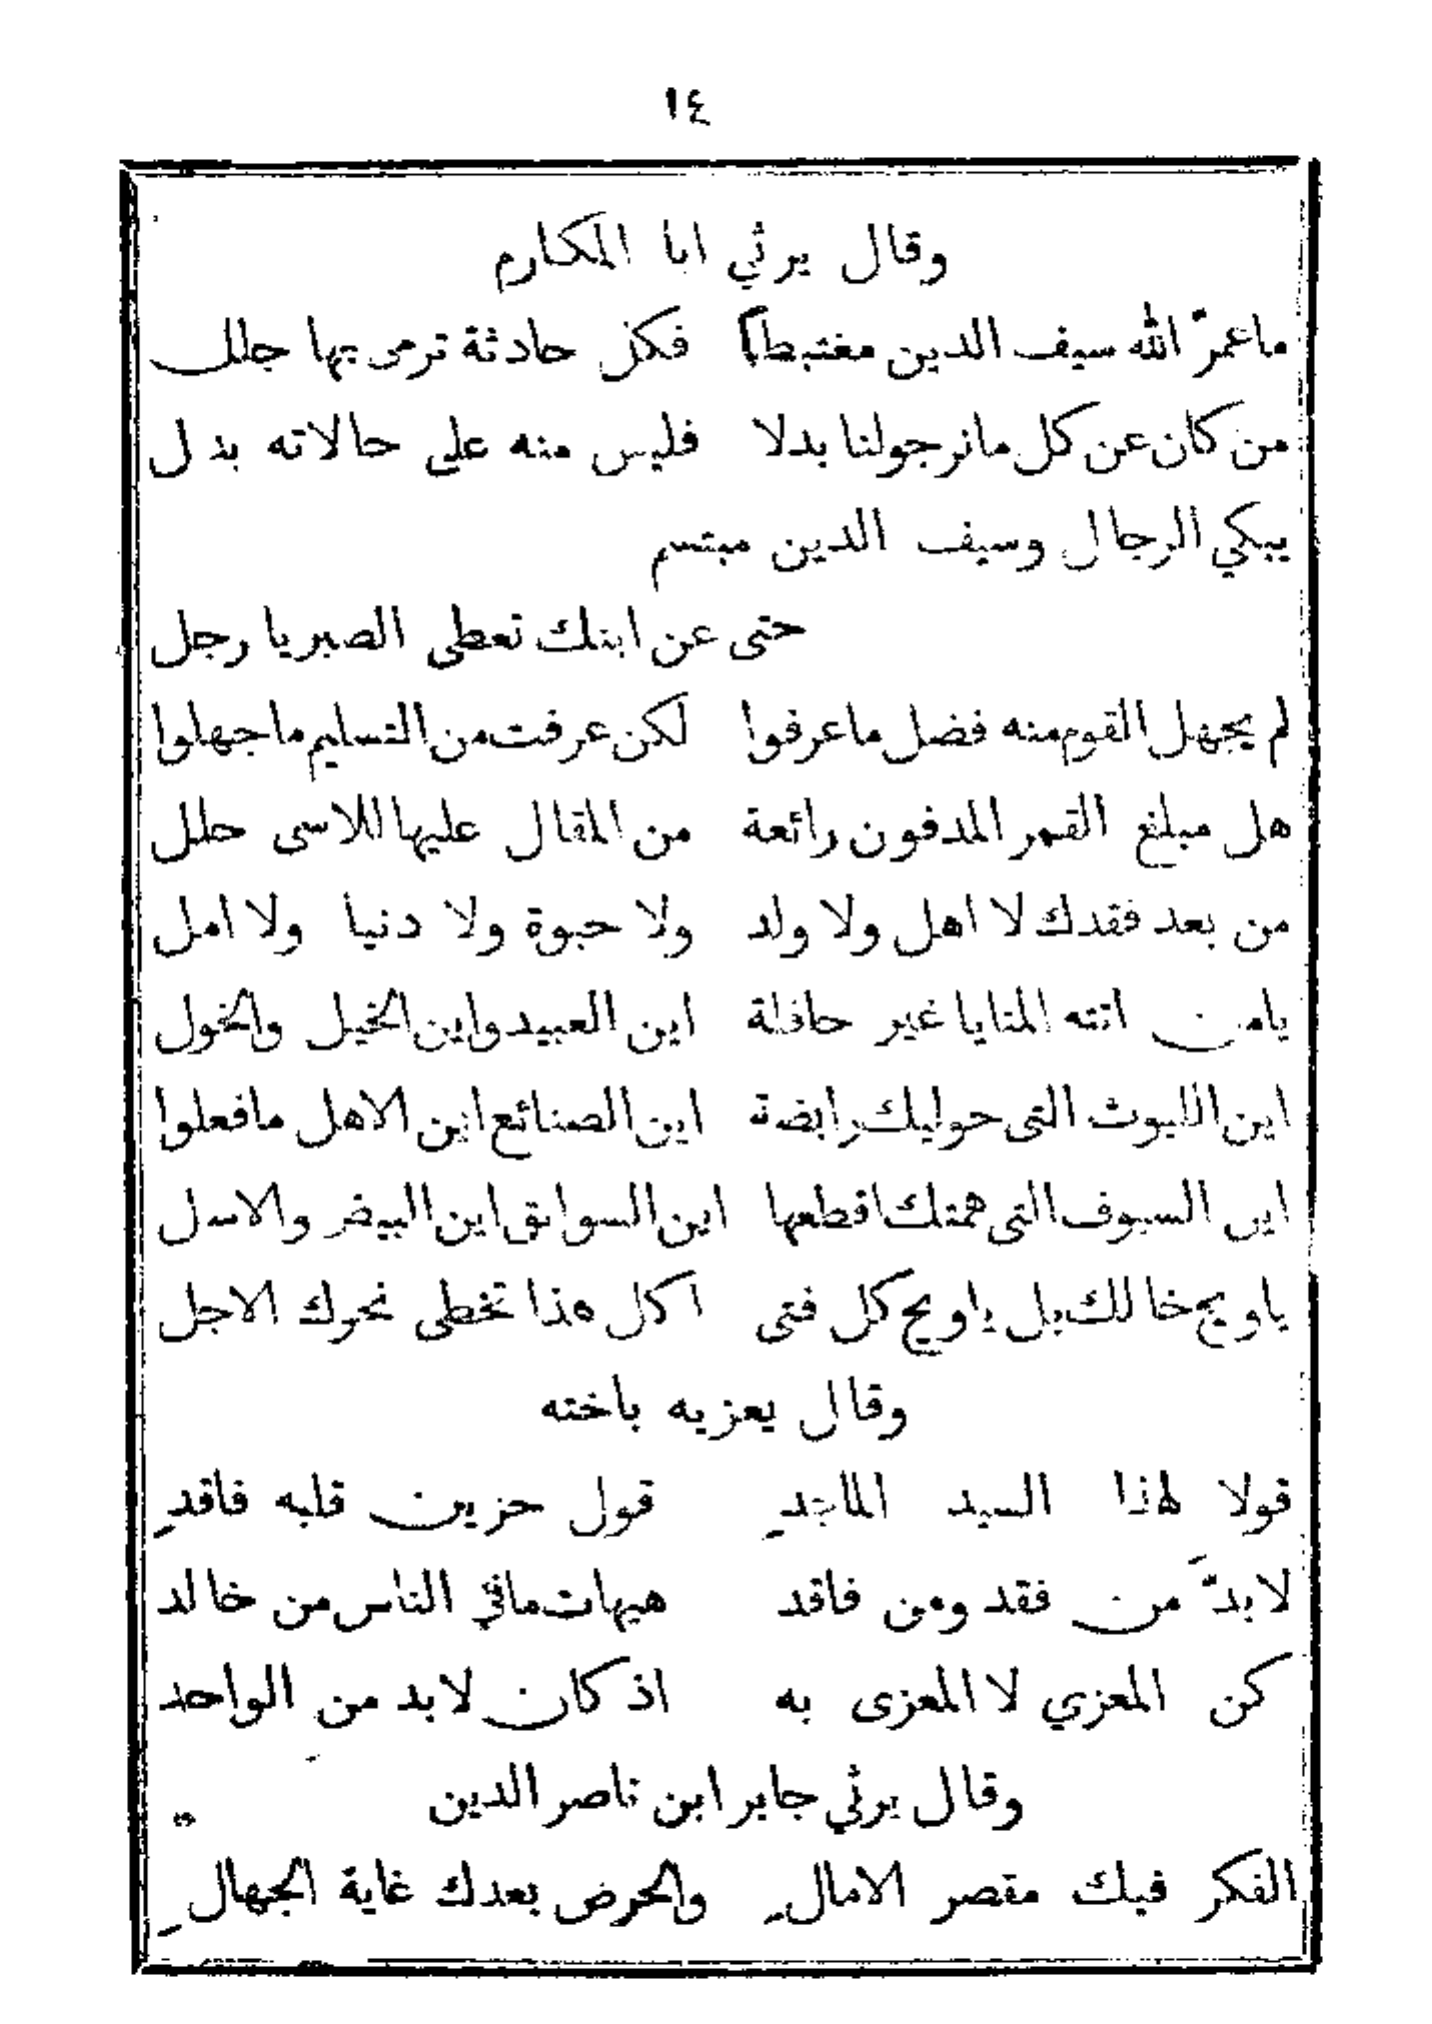 ١٤
وقال يرثي ابا المكارم
ما عمرّ الله سيف الدين مغتبطا فكل حادثة ترمى بها جلل
من كان عن كل ما نرجو لنا بدلا فليس منه على حالاته بدل
يبكي الرجال وسيف الدين مبتسم
حتى عن ابنك تعطى الصبر يا رجل
لم يجهل القوم منه فضل ما عرفوا لكن عرفت من التسليم ما جهلوا
هل مبلغ القمر المدفون رائعة من المقال عليها للاسى حلل
من بعد فقدك لا اهل ولا ولد ولا حبوة ولا دنيا ولا امل
يا من اتته المنايا غير حافلة اين العبيد واين الخيل والخول
اين الليوث التى حوليك رابضة اين الصنائع اين الاهل ما فعلوا
اين السيوف التى همتك اقطعها اين السوابق اين البيض والاسل
يا ويح خالك بل يا ويح كل فتى اكل هذا تخطى نحوك الاجل
وقال يعزيه باخته
قولا لهذا السيد الماجدِ قول حزين قلبه فاقدِ
لا بدَّ من فقد ومن فاقد هيهات ما في الناس من خالد
كن المعزي لا المعزى به اذ كان لا بد من الواحد
وقال يرثي جابر ابن ناصر الدين
الفكر فيك مقصر الامالِ والحرض بعدك غاية الجهالِ